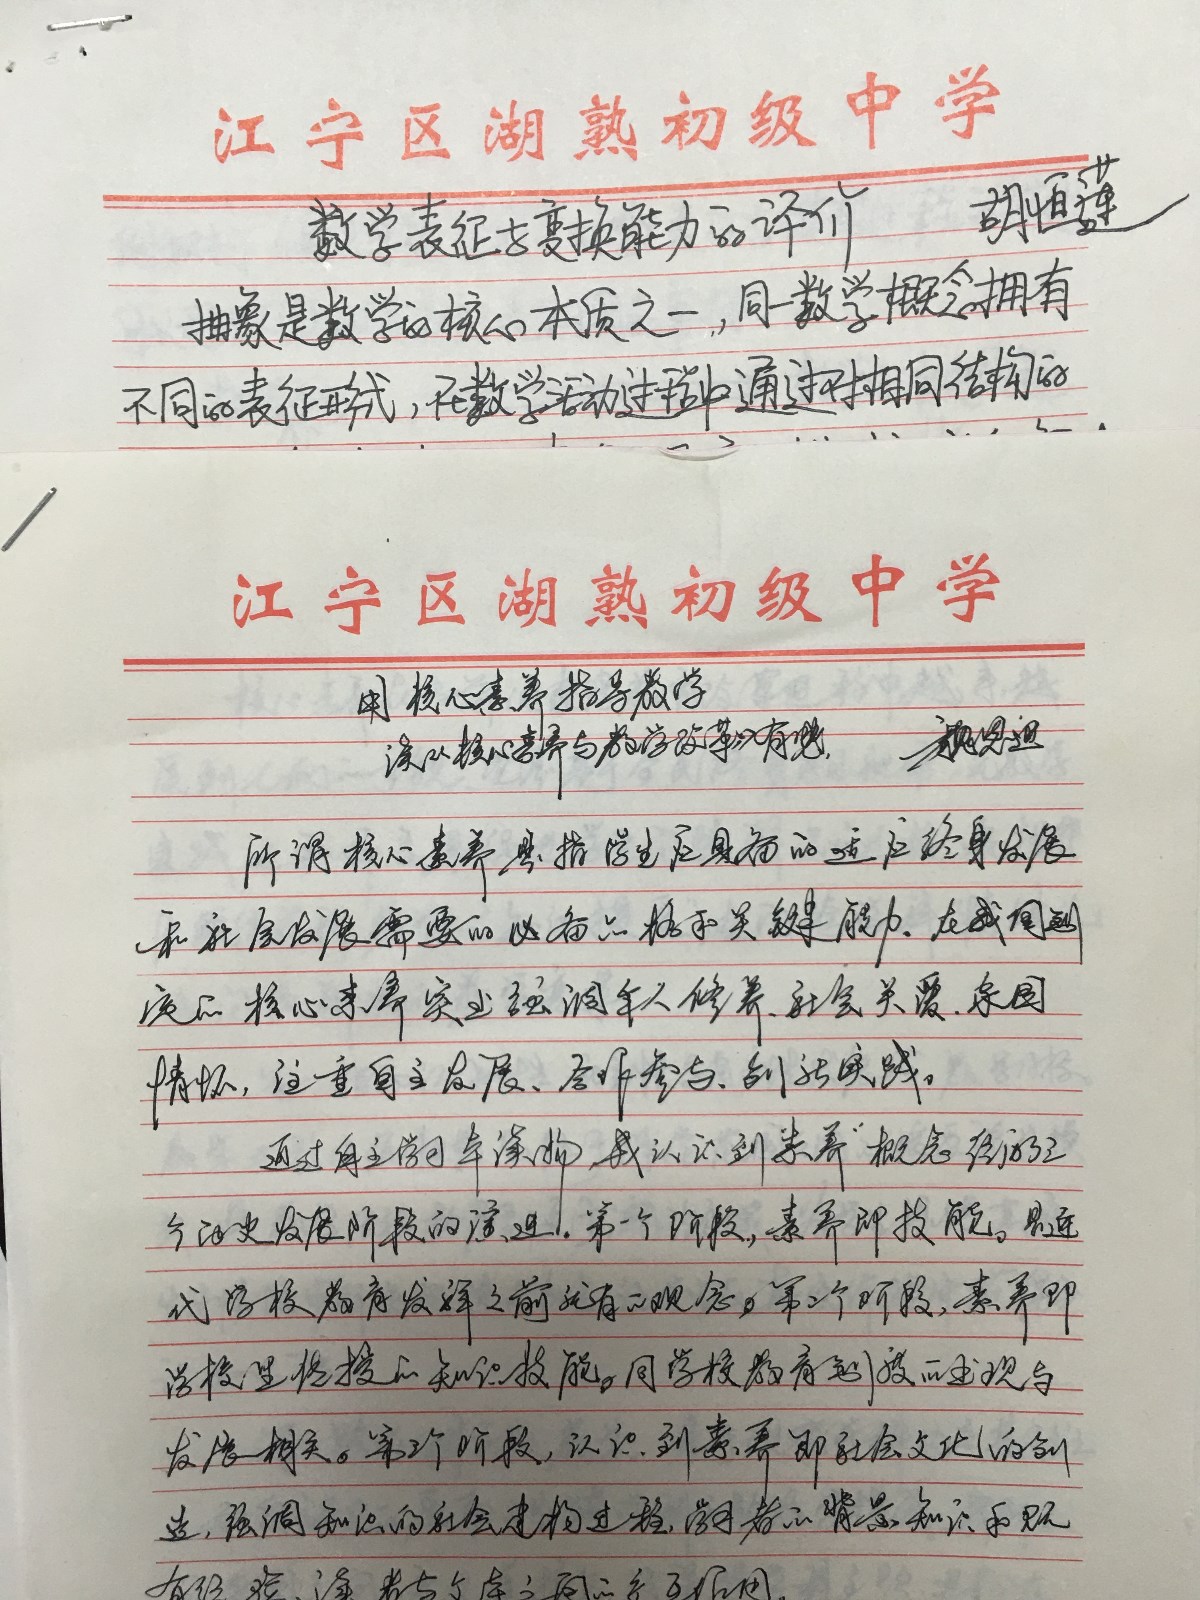 江宁区湖熟初级中学
数学表征与变换能力的评价 胡恒莲
抽象是数学的核心本质之一,同一数学概念拥有
不同的表征形式,在数学活动过程中通过对相同结构的
江宁区湖熟初级中学
用核心素养指导教学
读以核心素养与教学改革以有感. 魏思迎
所谓核心素养是指学生应具备的适应终身发展
和社会发展需要的必备品格和关键能力。在我国制
定的核心素养突出强调个人修养、社会关爱、家国
情怀,注重自主发展、合作参与、创新实践。
通过自主学习本读物,我认识到素养"概念经历三
个历史发展阶段的演进。第一个阶段,素养即技能。是近
代学校教育发轫之前就有的观念。第二个阶段,素养即
学校里传授的知识技能。同学校教育制度的出现与
发展相关。第三个阶段,认识到素养即社会文化的创
造,强调知识的社会建构过程,学习者的背景知识和既
有经验、读者与文本之间的交互作用。